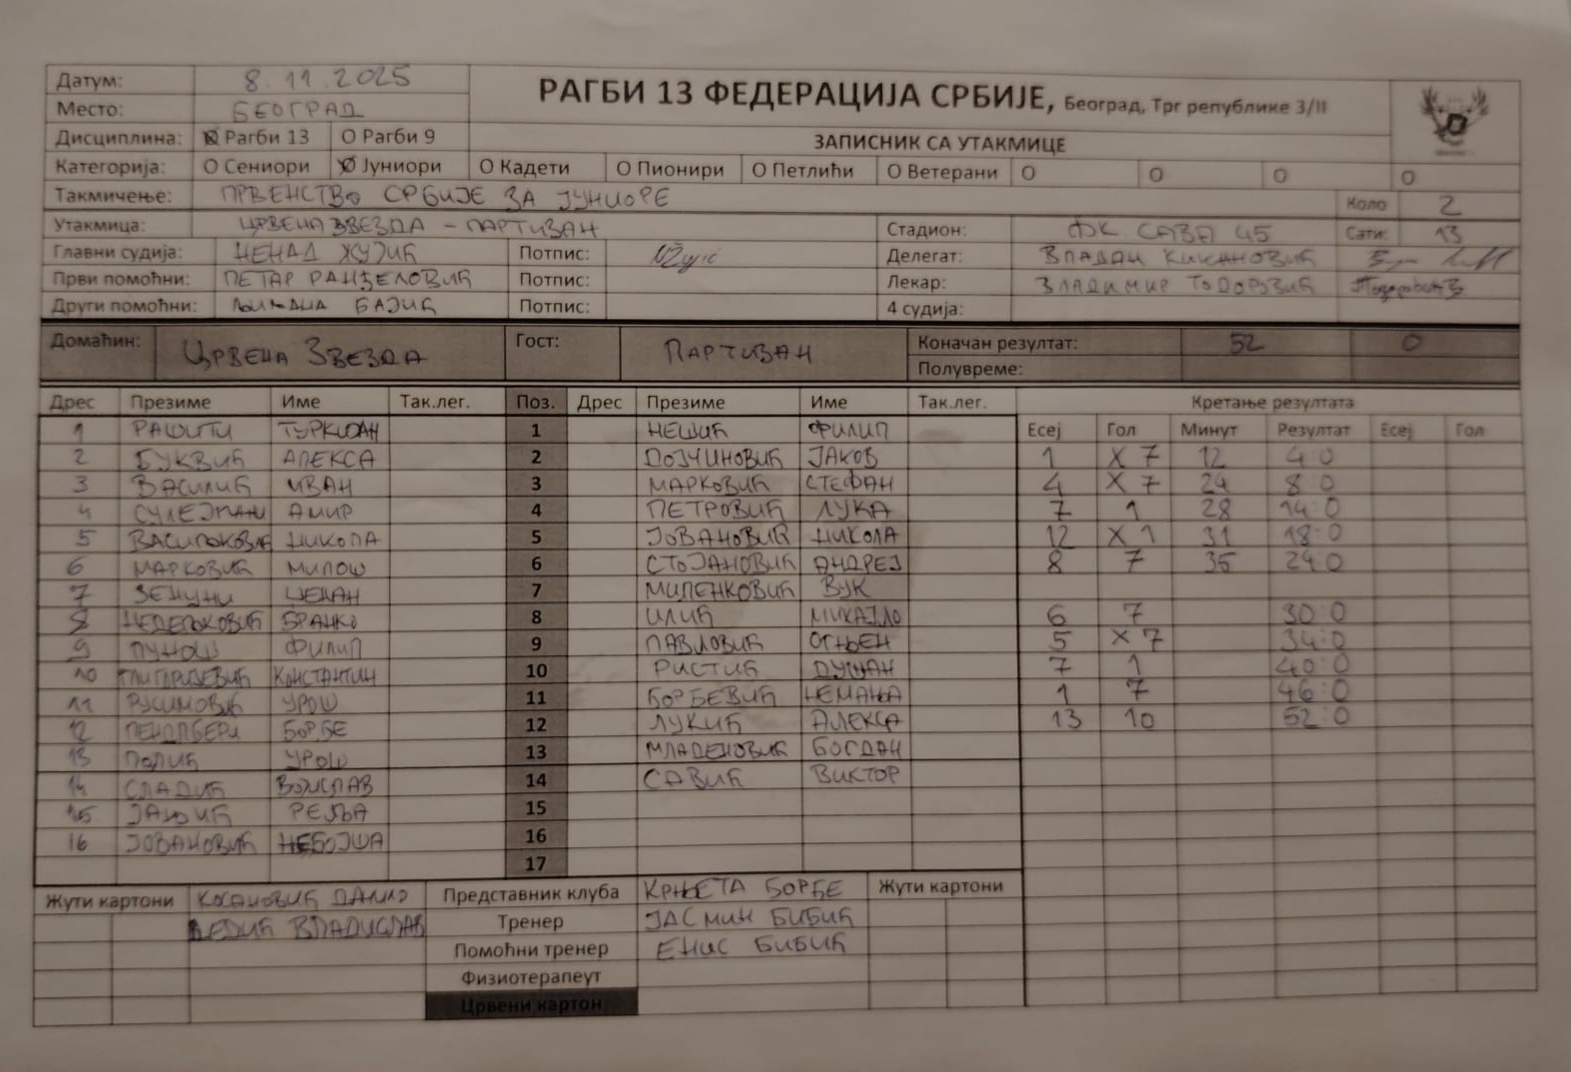 Датум: 8.11.2025 РАГБИ 13 ФЕДЕРАЦИЈА СРБИЈЕ, Београд, Трг републике 3/II
Место: БЕОГРАД
Дисциплина: Рагби 13 О Рагби 9 ЗАПИСНИК СА УТАКМИЦЕ
Категорија: О Сениори Јуниори О Кадети О Пионири О Петлићи О Ветерани О О О О
Такмичење: ПРВЕНСТВО СРБИЈЕ ЗА ЈУНИОРЕ Коло 2
Утакмица: ЦРВЕНА ЗВЕЗДА - ПАРТИЗАН Стадион: ФК САВА 45 Сати: 13
Главни судија: НЕНАД ЖУЈИЋ Потпис: Делегат: ВЛАДАН КИКАНОВИЋ
Први помоћни: ПЕТАР РАНЂЕЛОВИЋ Потпис: Лекар: ВЛАДИМИР ТОДОРОВИЋ
Други помоћни: БАЈИЋ Потпис: 4 судија:
Домаћин: ЦРВЕНА ЗВЕЗДА Гост: ПАРТИЗАН Коначан резултат: 52 0
Полувреме:
Дрес Презиме Име Так.лег. Поз. Дрес Презиме Име Так.лег. Кретање резултата
1 РАШИТИ 1 НЕШИЋ ФИЛИП Есеј Гол Минут Резултат Есеј Гол
2 БУКВИЋ АЛЕКСА 2 ДОЈЧИНОВИЋ ЈАКОВ 1 X 7 12 4:0
3 ВАСИЛИЋ ИВАН 3 МАРКОВИЋ СТЕФАН 4 X 7 24 8:0
4 АМИР 4 ПЕТРОВИЋ ЛУКА 7 1 28 14:0
5 НИКОЛА 5 ЈОВАНОВИЋ НИКОЛА 12 X 1 31 18:0
6 МАРКОВИЋ МИЛОШ 6 СТОЈАНОВИЋ АНДРЕЈ 8 7 35 24:0
7 ЗЕНУНИ 7 МИЛЕНКОВИЋ ВУК
8 НЕДЕЉКОВИЋ БРАНКО 8 ИЛИЋ МИХАЈЛО 6 7 30:0
9 ФИЛИП 9 ПАВЛОВИЋ ОГЊЕН 5 X 7 34:0
10 КОНСТАНТИН 10 РИСТИЋ ДУШАН 7 1 40:0
11 УРОШ 11 ЂОРЂЕВИЋ НЕМАЊА 1 7 46:0
12 ЂОРЂЕ 12 ЛУКИЋ АЛЕКСА 13 10 52:0
13 УРОШ 13 МЛАДЕНОВИЋ БОГДАН
14 СЛАДИЋ ВОЈИСЛАВ 14 САВИЋ ВИКТОР
15 РЕЉА 15
16 ЈОВАНОВИЋ НЕБОЈША 16
17
Жути картони КОСАНОВИЋ ДАНИЛО Представник клуба КРЊЕТА ЂОРЂЕ Жути картони
ВЛАДИСЛАВ Тренер ЈАСМИН БИБИЋ
Помоћни тренер ЕНИС БИБИЋ
Физиотерапеут
Црвени картон